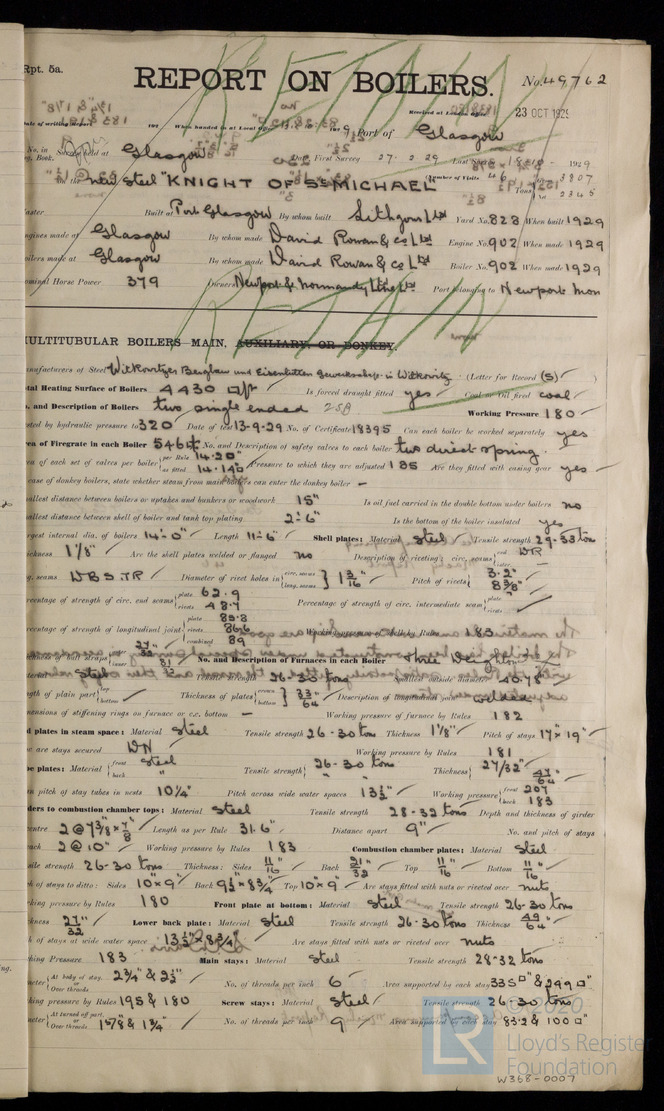 Rpt. 5a.
REPORT ON BOILERS.
No. 49762
23 OCT 1929
Port of Glasgow
No. in Survey held at Glasgow Date, First Survey 27. 2. 29 Last Survey 18 1929
on the new Steel "KNIGHT OF ST MICHAEL" (Number of Visits Gross 3807
Tons Net 2345
Built at Port Glasgow By whom built Lithgows Ltd Yard No. 828 When built 1929
Engines made at Glasgow By whom made David Rowan & Co Ltd Engine No. 902 When made 1929
Boilers made at Glasgow By whom made David Rowan & Co Ltd Boiler No. 902 When made 1929
Nominal Horse Power 379 Owners Newport & Normandy Line Ltd Port belonging to Newport Mon
RETAIN
MULTITUBULAR BOILERS—MAIN, AUXILIARY, OR DONKEY.
Manufacturers of Steel Witkowitzer Bergbau und Eisenhütten Gewerkschaft in Witkowitz (Letter for Record (S) )
Total Heating Surface of Boilers 4430 □ft Is forced draught fitted yes Coal or Oil fired coal
No. and Description of Boilers two single ended Working Pressure 180
Tested by hydraulic pressure to 320 Date of test 13-9-29 No. of Certificate 18395 Can each boiler be worked separately yes
Area of Firegrate in each Boiler 54 No. and Description of safety valves to each boiler two direct spring.
Area of each set of valves per boiler per Rule 14.20" as fitted 14.14 Pressure to which they are adjusted 185 Are they fitted with easing gear yes
In case of donkey boilers, state whether steam from main boilers can enter the donkey boiler —
Smallest distance between boilers or uptakes and bunkers or woodwork 15" Is oil fuel carried in the double bottom under boilers no
Smallest distance between shell of boiler and tank top plating 2'-6" Is the bottom of the boiler insulated yes
Largest internal dia. of boilers 14'-0" Length 11'-6" Shell plates: Material Steel Tensile strength 29-33 tons
Thickness 1 1/8" Are the shell plates welded or flanged no Description of riveting: circ. seams end DR
long. seams DBS.TR Diameter of rivet holes in circ. seams long. seams 1 3/16" Pitch of rivets 3.2" 8 3/8"
Percentage of strength of circ. end seams plate 62.9 rivets 48.7 Percentage of strength of circ. intermediate seam plate rivets
Percentage of strength of longitudinal joint plate 85.8 rivets 86.6 combined 89 Working pressure of shell by Rules 183
No. and Description of Furnaces in each Boiler Three Deighton
Material Steel Tensile strength 26-30 tons Smallest outside diameter
Length of plain part top bottom Thickness of plates crown bottom 33/64" Description of longitudinal joint welded
Dimensions of stiffening rings on furnace or c.c. bottom — Working pressure of furnace by Rules 182
End plates in steam space: Material Steel Tensile strength 26-30 tons Thickness 1 1/8" Pitch of stays 17" x 19"
How are stays secured DN Working pressure by Rules 181
Tube plates: Material front Steel back " Tensile strength 26-30 tons " Thickness 27/32" 47/64"
Mean pitch of stay tubes in nests 10 1/4" Pitch across wide water spaces 13 1/2" Working pressure front 207 back 183
Girders to combustion chamber tops: Material Steel Tensile strength 28-32 tons Depth and thickness of girder
at centre 2 @ 7 3/8" x 7/8" Length as per Rule 31.6" Distance apart 9" No. and pitch of stays
in each 2 @ 10" Working pressure by Rules 183 Combustion chamber plates: Material Steel
Tensile strength 26-30 tons Thickness: Sides 11/16" Back 21/32" Top 11/16" Bottom 11/16"
Pitch of stays to ditto: Sides 10" x 9" Back 9 1/2" x 8 3/4" Top 10" x 9" Are stays fitted with nuts or riveted over nuts
Working pressure by Rules 180 Front plate at bottom: Material Steel Tensile strength 26-30 tons
Thickness 27/32" Lower back plate: Material Steel Tensile strength 26-30 tons Thickness 49/64"
Pitch of stays at wide water space 13 1/2" x 8 3/4" Are stays fitted with nuts or riveted over nuts
Working Pressure 183 Main stays: Material Steel Tensile strength 28-32 tons
Diameter At body of stay, or Over threads 2 3/4" & 2 1/2" No. of threads per inch 6 Area supported by each stay 335 □" & 299 □"
Working pressure by Rules 195 & 180 Screw stays: Material Steel Tensile strength 26-30 tons
Diameter At turned off part, or Over threads 1 5/8" & 1 3/4" No. of threads per inch 9 Area supported by each stay 83.2 & 100 □"
© 2020
LR
Lloyd's Register
Foundation
W368-0007